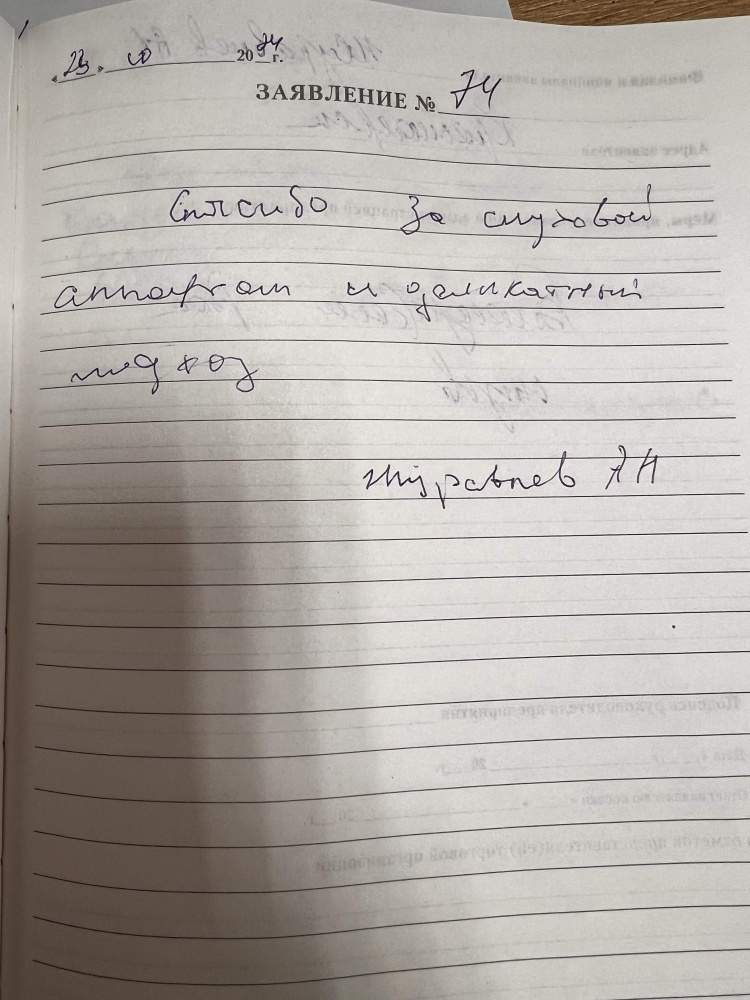 « 23 » 10 2024 г.
ЗАЯВЛЕНИЕ № 74
Спасибо за слуховой
аппарат и деликатный
подход
Журавлев АН